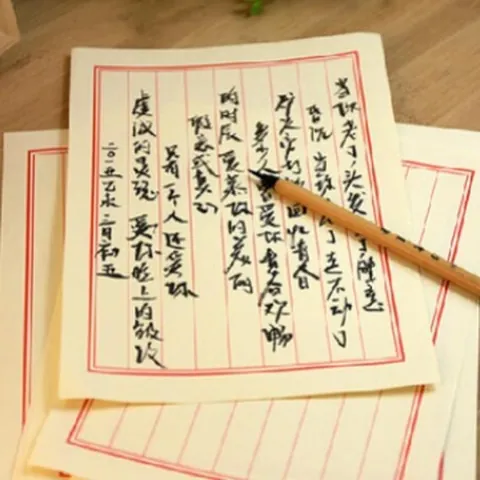 当你老了,头发白了,睡意
昏沉 当你老了 走不动了
炉火旁打盹 回忆青春
多少人曾爱你青春欢畅
的时辰 爱慕你的美丽
假意或真心
只有一个人还爱你
虔诚的灵魂 爱你脸上的皱纹
二〇一五乙未二月初五